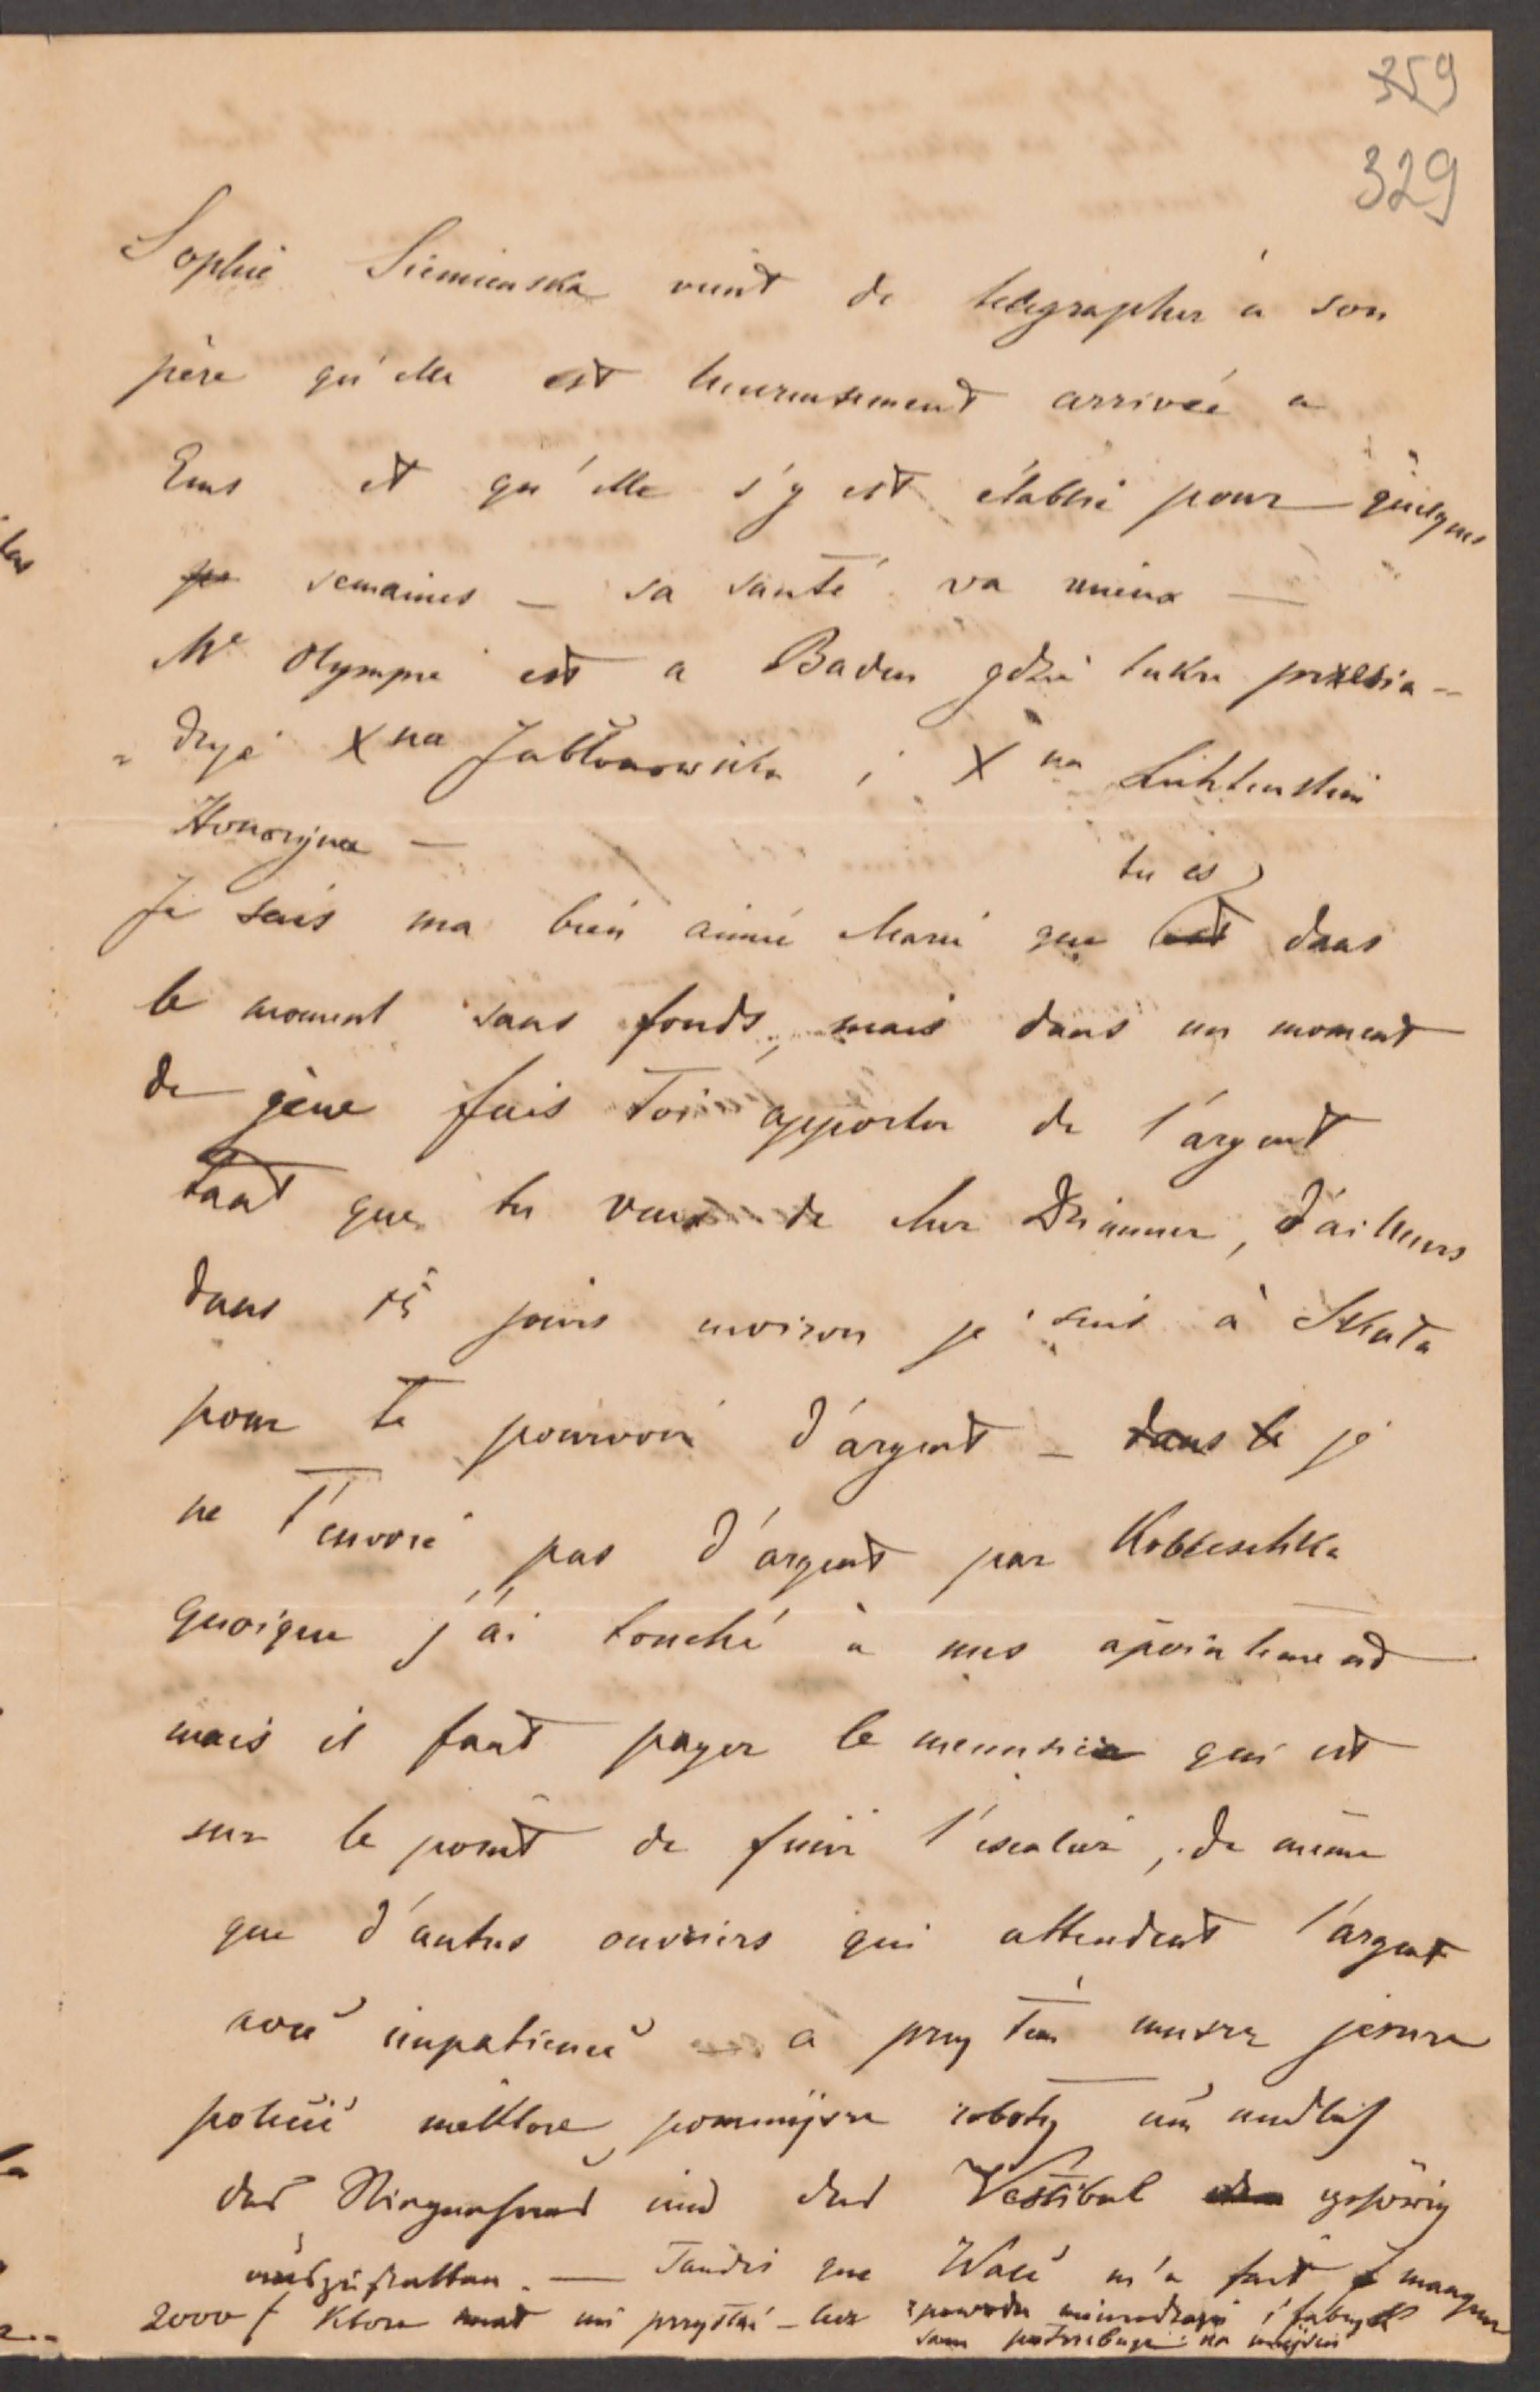 359
329
Sophie Siemienska vient de telegrapher a son
père qu'elle est heureusement arrivée a
Ems et qu'elle s'y est établie pour quelques
semaines – sa santé va mieux –
Me Olympie est a Baden gdzie także przesia-
"duje Xna Jabłonowska i Xna Lichtenstein
Honoryna –
Je sais ma bien aimée Marie que tu es dans
le moment sans fonds, mais dans un moment
de gène fais toi apporter de l'argent
tant que tu veux de cher Dzimmer, d'ailleurs
dans 15 jours environ je suis à Skała
pour te pourvoir d'argent – dans le je
ne t'envoie pas d'argent par
quoique j'ai touché à mes apointement
mais il faut payer le menusier qui est
sur le point de finir l'escalier, de même
que d'autres ouvriers qui attendent l'argent
avec impatience – a przy tem muszę jeszcze
polecić niektore pomniejsze roboty um endlich
das Stiegenhaus und das Vestibul gehörig
auszustatten. – Tandis que Wacé m'a fait manquer
2000 f ktore miał mi przysłać – lecz z powodu nieurodzajów i fabryk
sam potrzebuje na miejscu